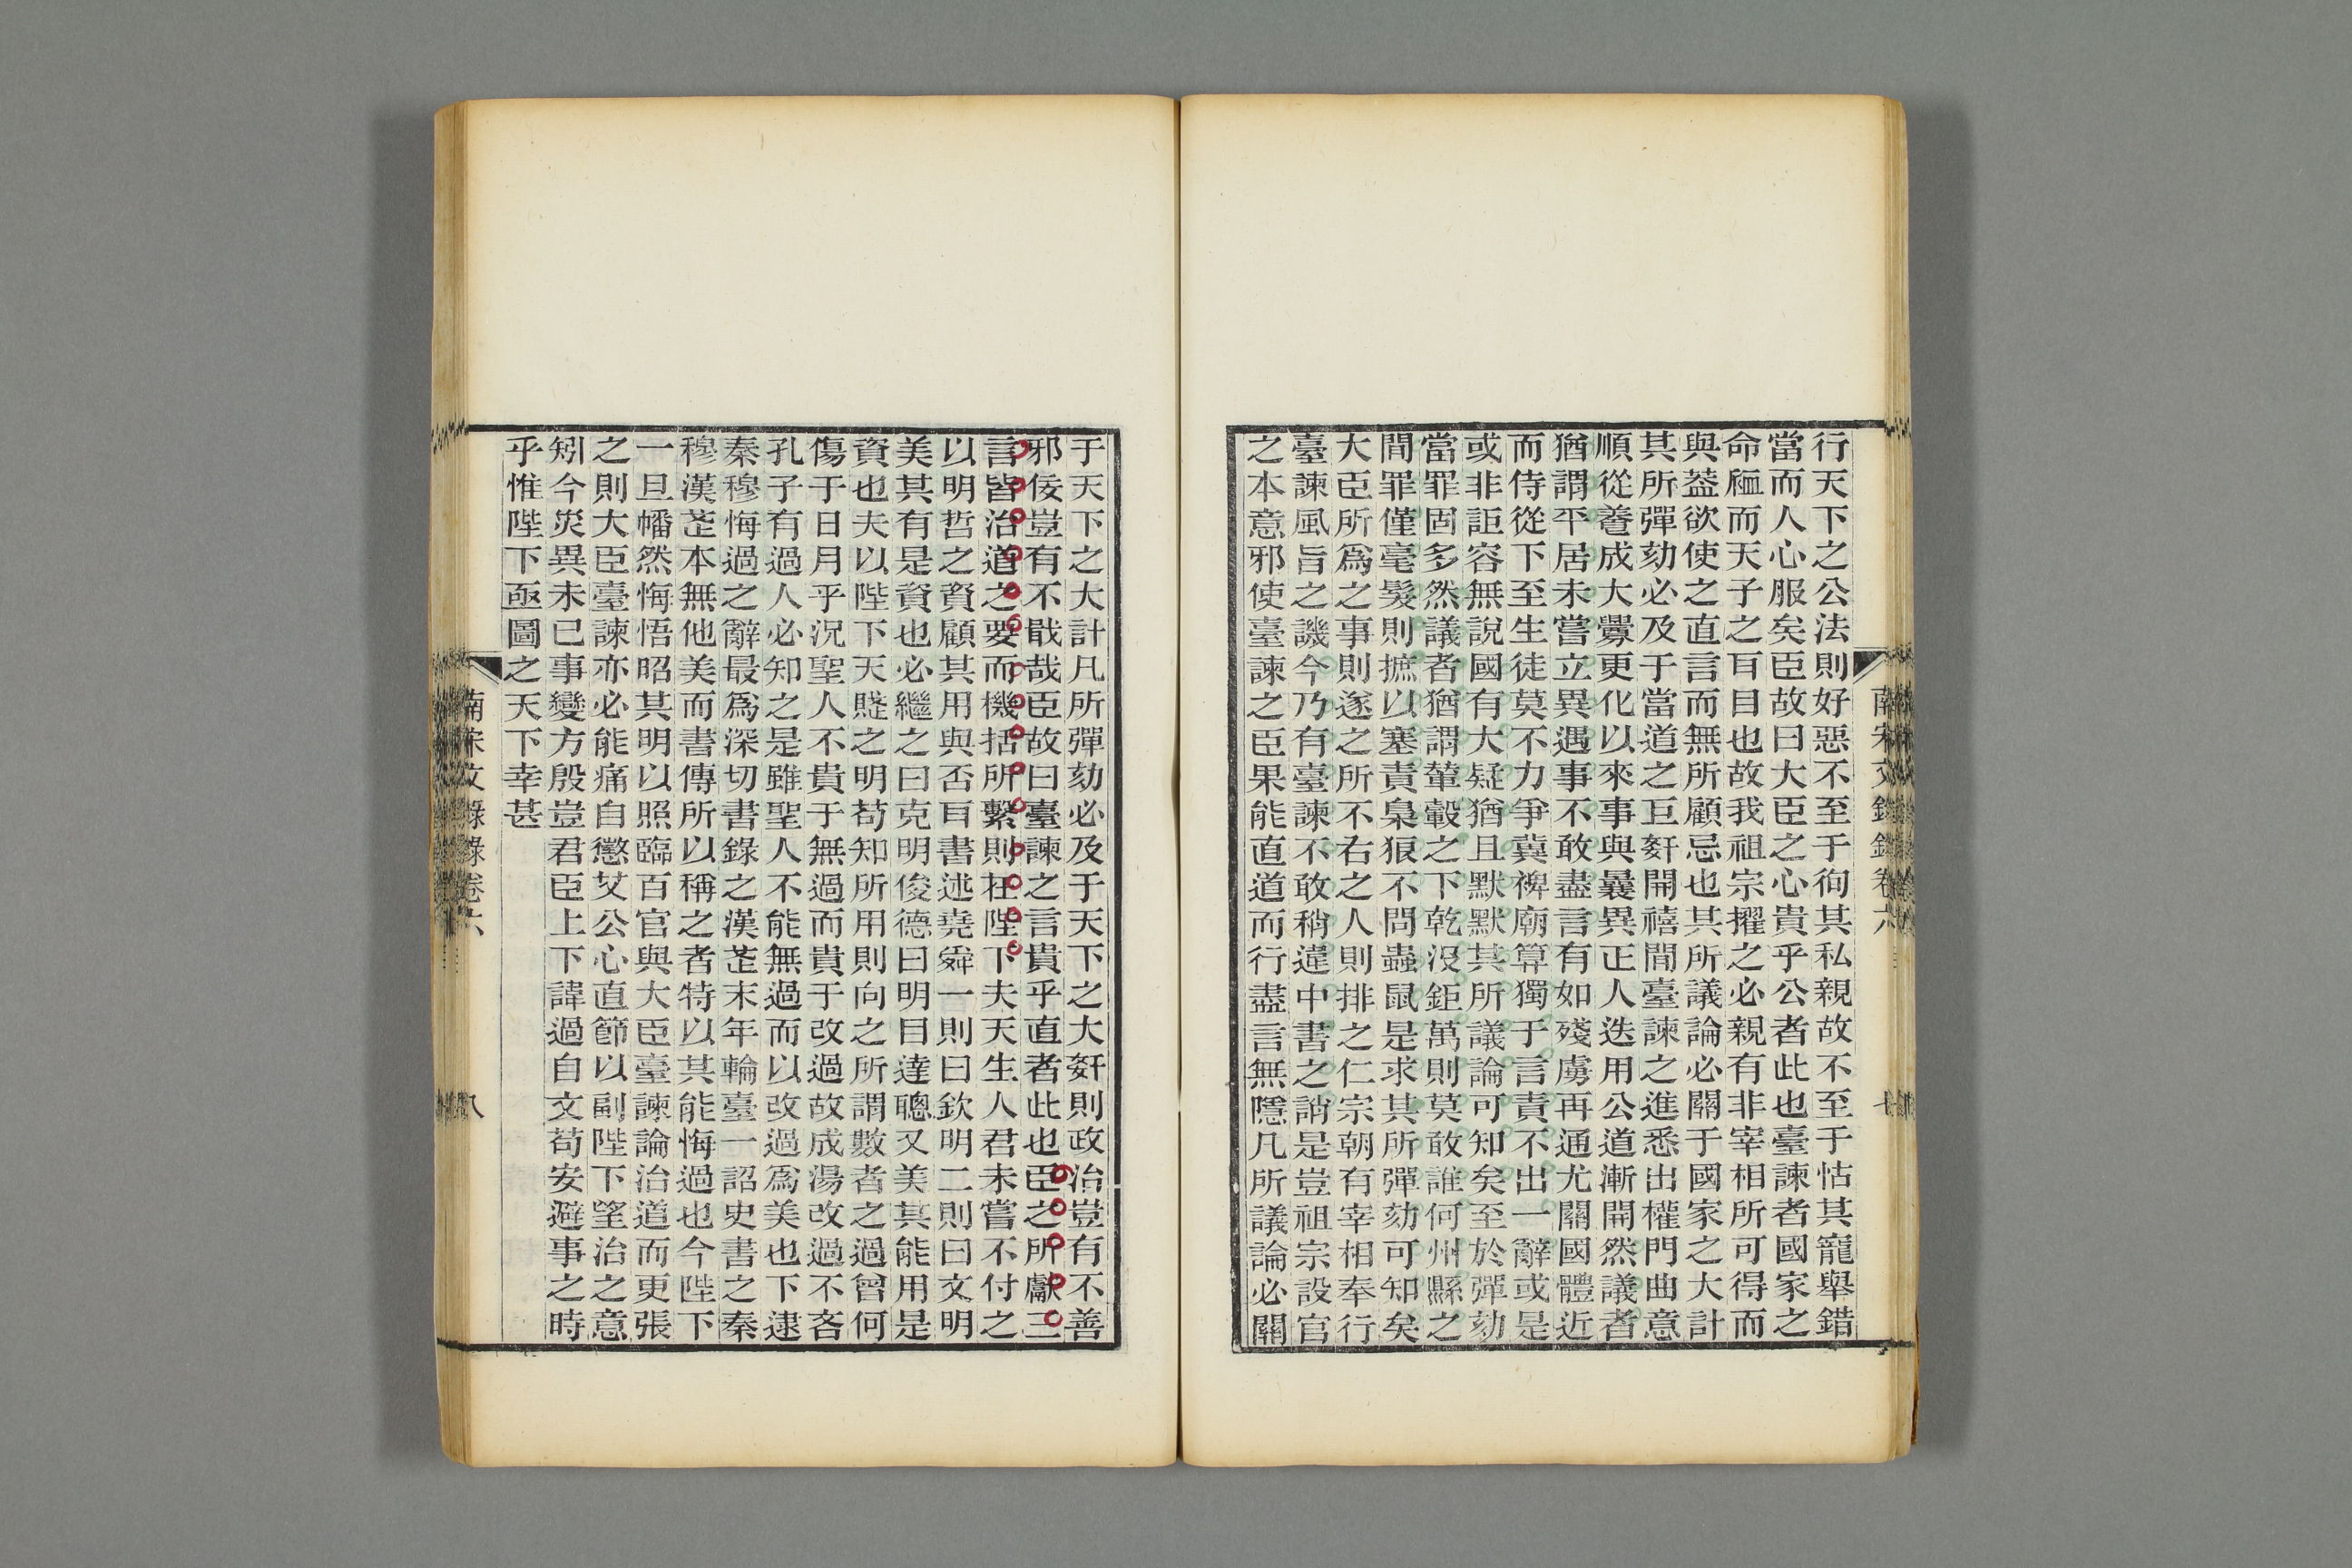 行天下之公法則好惡不至于徇其私親故不至于怙其寵舉錯
當而人心服矣臣故曰大臣之心貴乎公者此也臺諫者國家之
命衇而天子之耳目也故我祖宗擢之必親有非宰相所可得而
與葢欲使之直言而無所顧忌也其所議論必關于國家之大計
其所彈劾必及于當道之巨姧開禧間臺諫之進悉出權門曲意
順從養成大釁更化以來事與曩異正人迭用公道漸開然議者
猶謂平居未嘗立異遇事不敢盡言有如殘虜再通尤關國體近
而侍從下至生徒莫不力爭冀裨廟算獨于言責不出一辭或是
或非詎容無說國有大疑猶且默默其所議論可知矣至於彈劾
當罪固多然議者猶謂輦轂之下乾沒鉅萬則莫敢誰何州縣之
間罪僅毫髮則摭以塞責梟狠不問蟲鼠是求其所彈劾可知矣
大臣所爲之事則遂之所不右之人則排之仁宗朝有宰相奉行
臺諫風旨之譏今乃有臺諫不敢稍違中書之誚是豈祖宗設官
之本意邪使臺諫之臣果能直道而行盡言無隱凡所議論必關
南宋文錄錄卷六
七
于天下之大計凡所彈劾必及于天下之大姧則政治豈有不善
邪佞豈有不戢哉臣故曰臺諫之言貴乎直者此也臣之所獻三
言皆治道之要而機括所繫則在陛下夫天生人君未嘗不付之
以明哲之資顧其用與否耳書述堯舜一則曰欽明二則曰文明
美其有是資也必繼之曰克明俊德曰明目達聰又美其能用是
資也夫以陛下天賦之明苟知所用則向之所謂數者之過曾何
傷于日月乎況聖人不貴于無過而貴于改過故成湯改過不吝
孔子有過人必知之是雖聖人不能無過而以改過爲美也下逮
秦穆悔過之辭最爲深切書錄之漢武末年輪臺一詔史書之秦
穆漢武本無他美而書傳所以稱之者特以其能悔過也今陛下
一旦幡然悔悟昭其明以照臨百官與大臣臺諫論治道而更張
之則大臣臺諫亦必能痛自懲艾公心直節以副陛下望治之意
矧今災異未已事變方殷豈君臣上下諱過自文苟安避事之時
乎惟陛下亟圖之天下幸甚
南宋文錄錄卷六
八